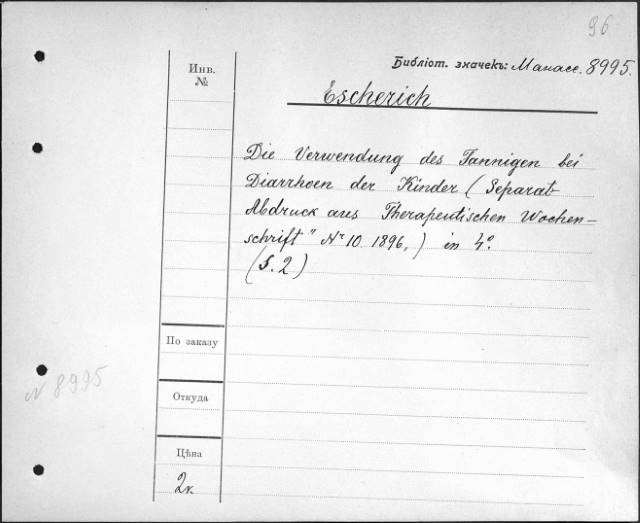 96
Инв.
№
Библіот. значекъ: Манасс. 8995.
Escherich
Die Verwendung des Tannigen bei
Diarrhoen der Kinder (Separat-
Abdruck aus Therapeutischen Wochen-
schrift" Nr 10 1896,) in 4°.
(S. 2)
По заказу
N 8995
Откуда
Цѣна
2к.